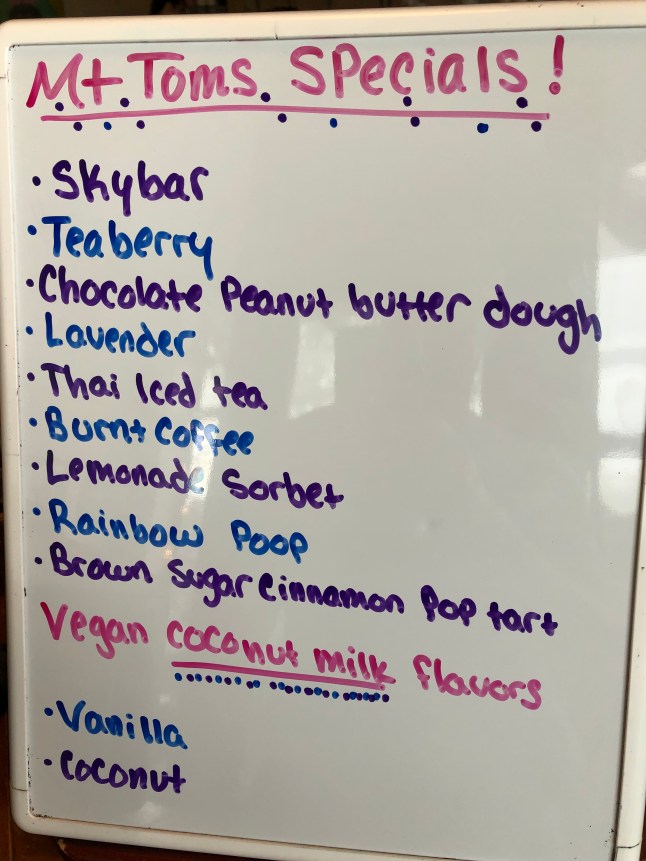 Mt Toms Specials!
• Skybar
• Teaberry
• Chocolate Peanut butter dough
• Lavender
• Thai Iced tea
• Burnt Coffee
• Lemonade Sorbet
• Rainbow Poop
• Brown Sugar Cinnamon Pop tart
Vegan coconut milk flavors
• Vanilla
• Coconut